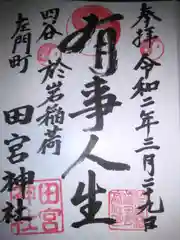 奉拝 令和二年三月二十九日
有事人生
四谷 於岩稲荷
左門町
田宮神社
田宮
神社